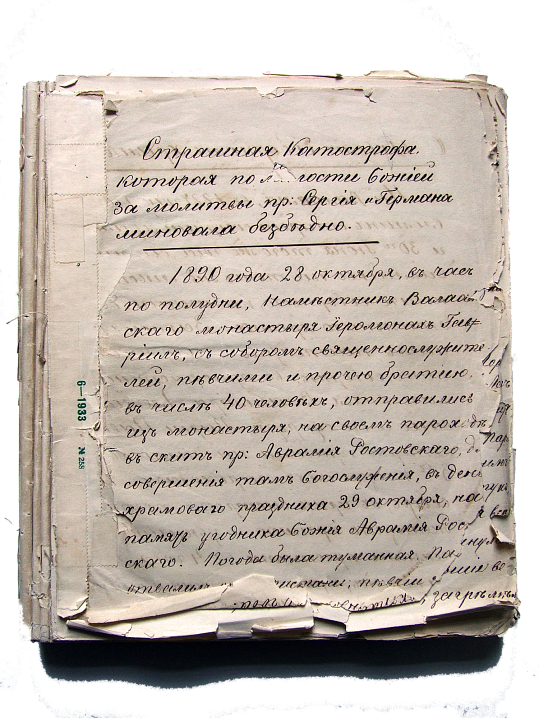 Страшная Катострофа.
которая по гости Божіей
За молитвы пр: Сергія и Германа
миновала безбѣдно.
1890 года 28 октября, въ часъ
по полудни, Намѣстникъ Валаам
скаго монастыря Іеромонахъ Гав
ріилъ, съ соборомъ священнослужите
лей, пѣвчими и прочею братією,
въ числѣ 40 человѣкъ, отправились
изъ монастыря, на своемъ пароходѣ,
въ скитъ пр: Аврамія Ростовскаго, д
совершенія тамъ Богослуженія, въ день
храмоваго праздника 29 октября, на
память угодника Божія Аврамія Рос
скаго. Погода была туманная. Па
пѣвчіе
загрѣ
6—1933
№ 258